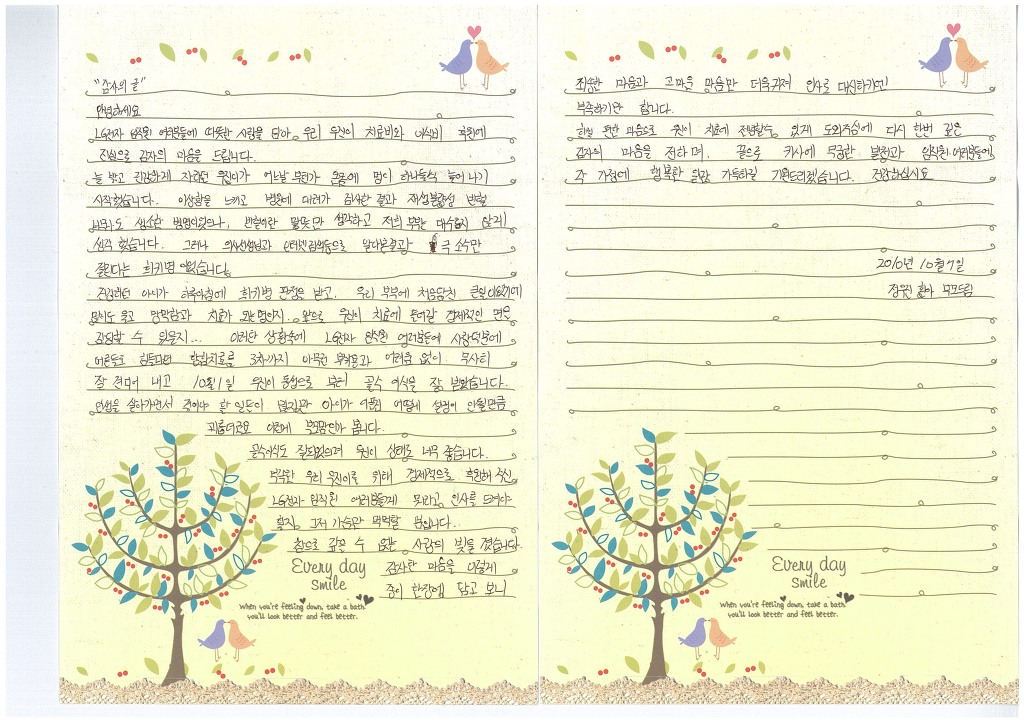 "감사의 글"
안녕하세요
LG전자 임직원 여러분들에 따뜻한 사랑을 담아 우리 우진이 치료비와 이식비 후원에
진심으로 감사의 마음을 드립니다.
늘 밝고 건강하게 자라던 우진이가 어느날 부턴가 온몸에 멍이 하나둘씩 늘어나기
시작했습니다. 이상함을 느끼고 병원에 데려가 검사한 결과 재생불량성 빈혈
생소한 병명이었으나, 빈혈이란 말뜻만 생각하고 저희 부부 대수롭지 않게
생각 했습니다. 그러나 의사선생님과 인터넷검색등으로 알아본결과 극 소수만
걸린다는 희귀병 이었습니다.
건강하던 아이가 하루아침에 희귀병 판정을 받고, 우리 부부에 처음닥친 큰일이었기에
앞으로 우진이 치료에 들어갈 경제적인 면은
감당할 수 있을지... 이러한 상황속에 LG전자 임직원 여러분들에 사랑덕분에
어른들도 힘들다던 항암치료를 3차까지 아무런 부작용과 어려움 없이 무사히
잘 견뎌 내고 10월1일 우진이 동생으로 부터 골수 이식을 잘 받았습니다.
인생을 살아가면서 죽이나 할 일들이 많겠지만 아이가 아픔은 어떻게 설명이 안될만큼
괴롭더군요 이런게 부모맘인가 봅니다.
골수이식도 잘되었으며 우진이 상태도 너무 좋습니다.
부족한 우리 우진이를 위해 경제적으로 후원해 주신
LG전자 임직원 여러분들게 뭐라고 인사를 드려야
할지, 그저 가슴만 먹먹할 뿐입니다..
참으로 갚을 수 없는 사랑의 빚을 졌습니다.
감사한 마음을 이렇게
종이 한장에 담고 보니
Every day
smile
When you're feeling down, take a bath
you'll look better and feel better.
죄송한 마음과 고마운 마음만 더욱커져 인사로 대신하기엔
부족하기만 합니다.
한결 편한 마음으로 우진이 치료에 전념할수 있게 도와주심에 다시 한번 깊은
감사의 마음을 전하며, 끝으로 귀사에 무궁한 발전과 임직원 여러분들에
각 가정에 행복한 일만 가득하길 기원드리겠습니다. 건강하십시요
2016년 10월 7일
정우진 환아 부모드림
Every day
smile
When you're feeling down, take a bath
you'll look better and feel better.